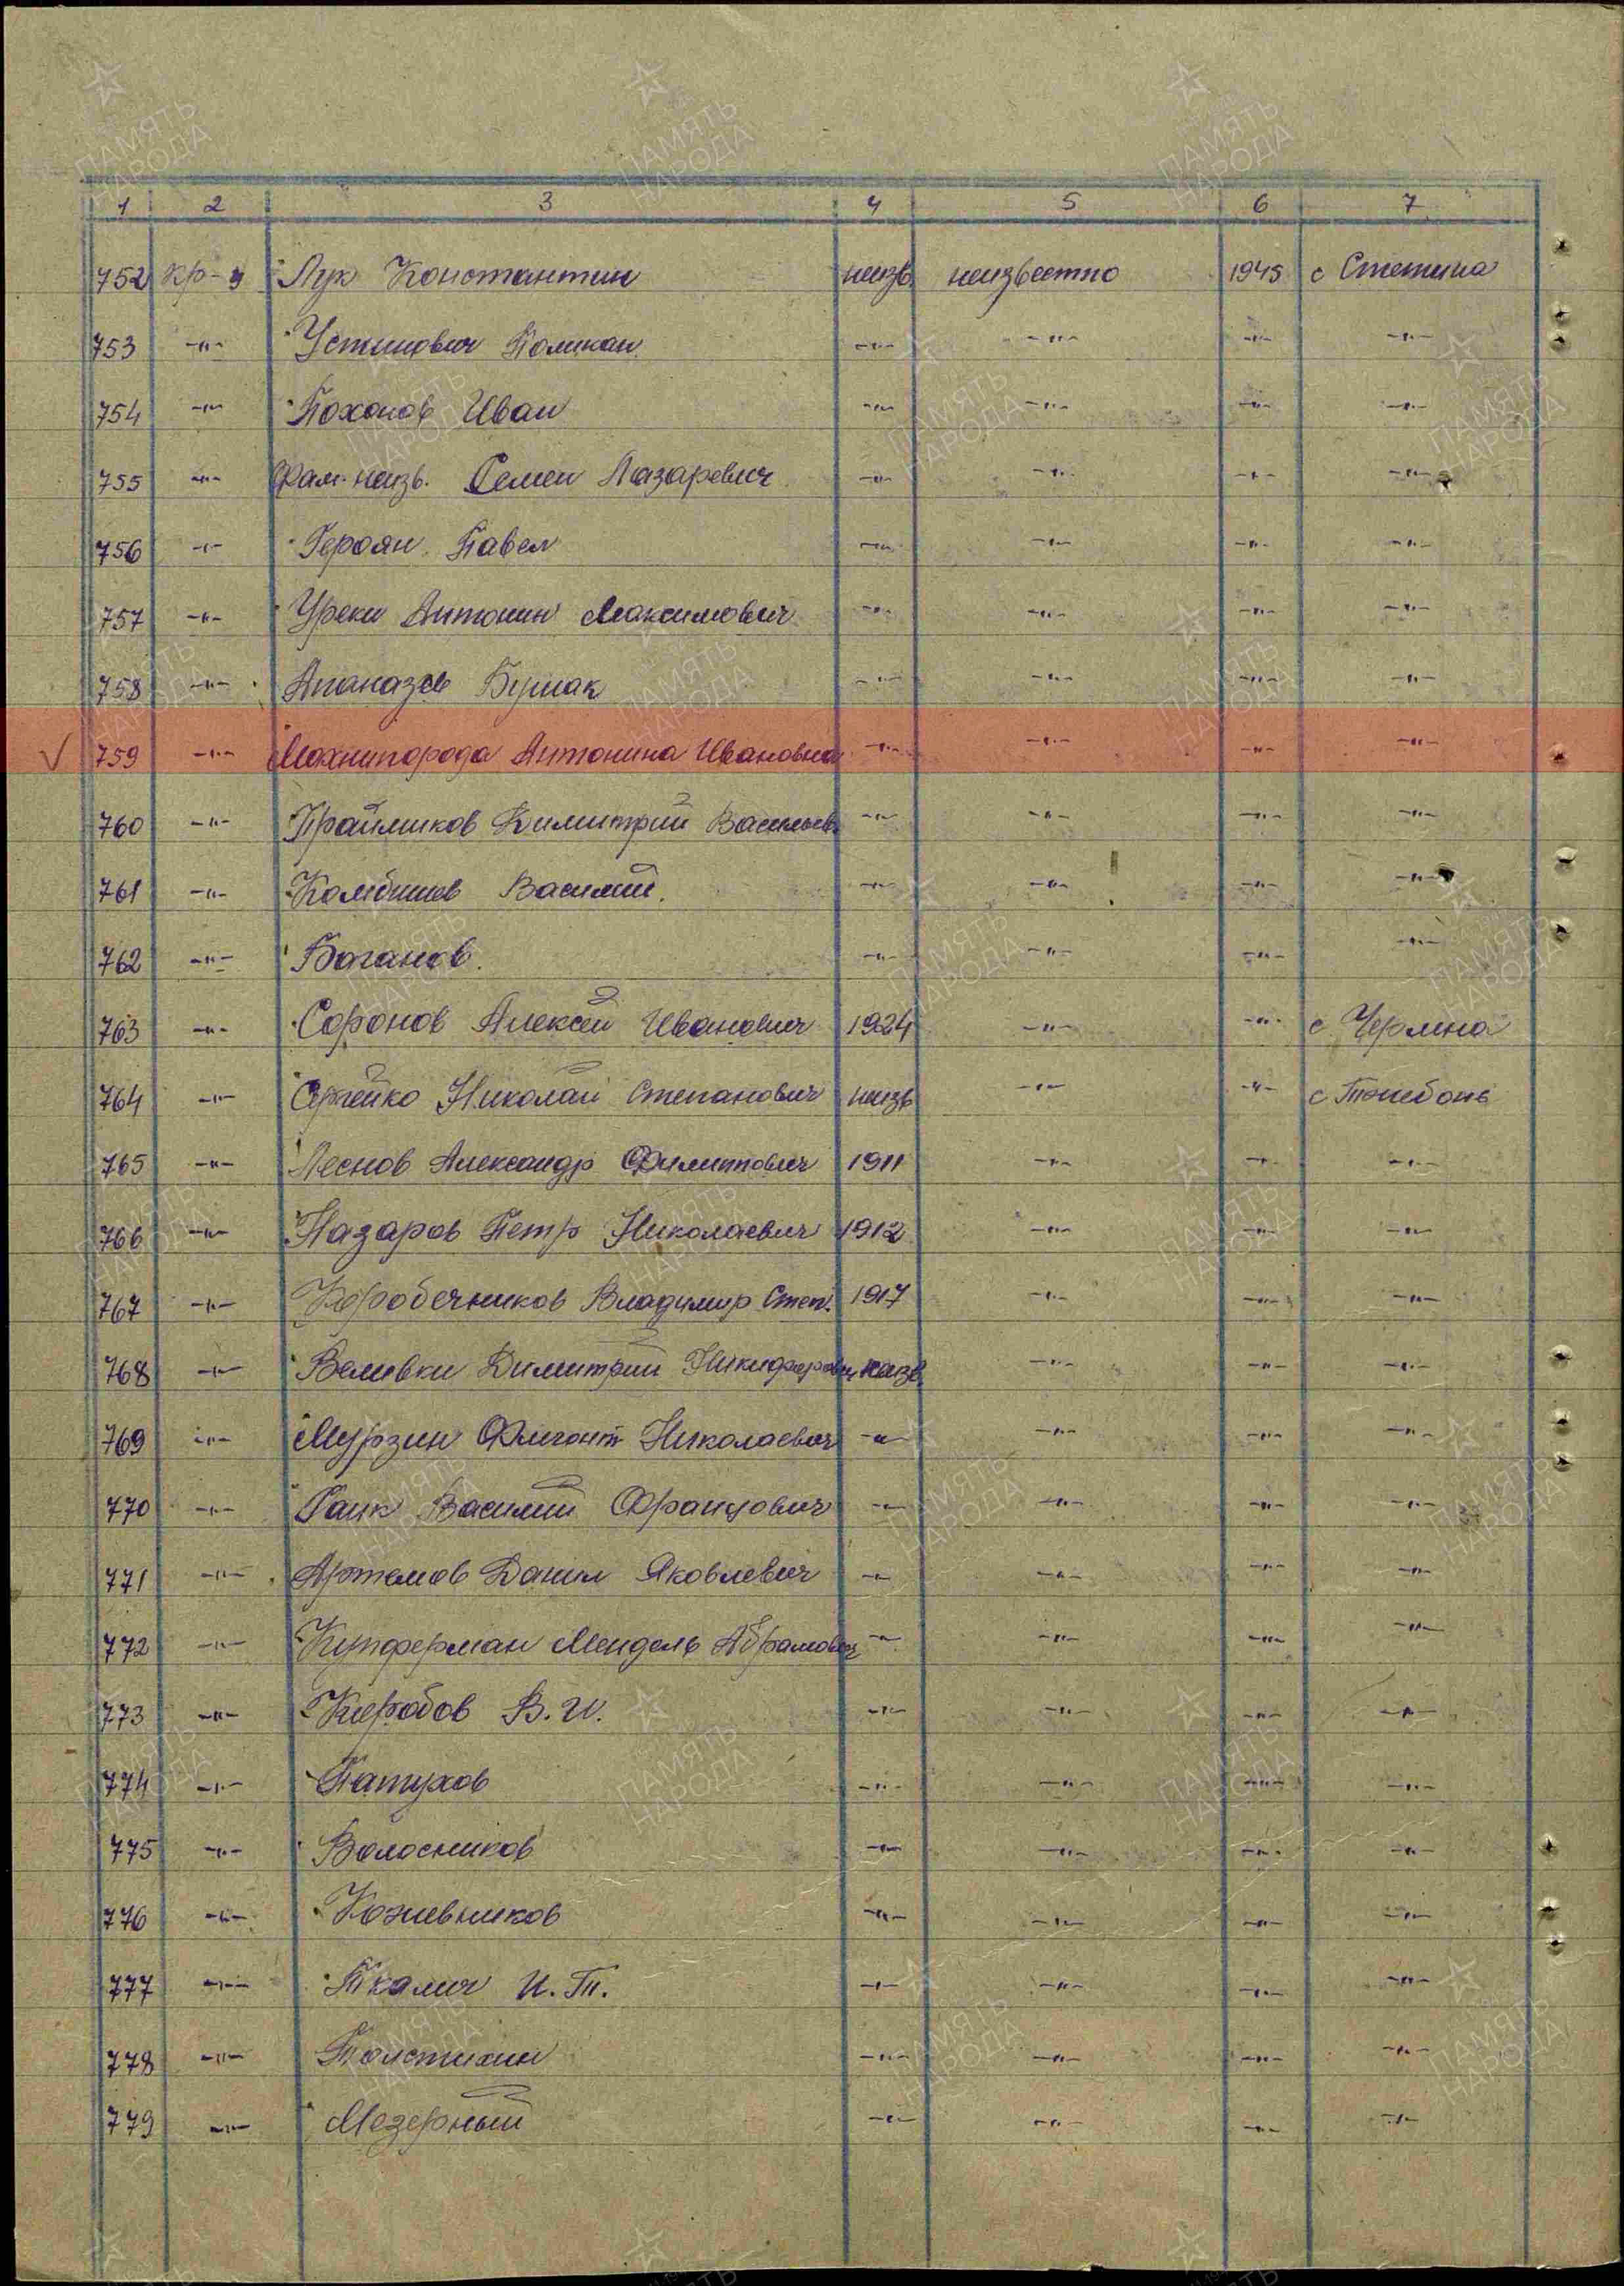 1 2 3 4 5 6 7
752 кр-ц Лук Константин неизв. неизвестно 1945 с Стетина
753 -"- Устинович Поликан -"- -"- -"- -"-
754 -"- Поханов Иван -"- -"- -"- -"-
755 -"- Фам. неизв. Семен Лазаревич -"- -"- -"- -"-
756 -"- Героян Павел -"- -"- -"- -"-
757 -"- Уреки Антонин Максимович -"- -"- -"- -"-
758 -"- Апаназев -"- -"- -"- -"-
759 -"- Махнипорода Антонина Ивановна -"- -"- -"- -"-
760 -"- Димитрий Васильев. -"- -"- -"- -"-
761 -"- Василий. -"- -"- -"- -"-
762 -"- Баганов. -"- -"- -"- -"-
763 -"- Соронов Алексей Иванович 1924 -"- -"- с Чермена
764 -"- Сергейко Николай Степанович неизв -"- -"- с
765 -"- Леснов Александр Филиппович 1911 -"- -"- -"-
766 -"- Назаров Петр Николаевич 1912 -"- -"- -"-
767 -"- Коробечников Владимир Степ. 1917 -"- -"- -"-
768 -"- Великки Димитрий неизв. -"- -"- -"-
769 -"- Мурзин Флегонт Николаевич -"- -"- -"- -"-
770 -"- Ганк Василий Францович -"- -"- -"- -"-
771 -"- Артемов Данил Яковлевич -"- -"- -"- -"-
772 -"- Купферман Мендель Абрамович -"- -"- -"- -"-
773 -"- В. И. -"- -"- -"- -"-
774 -"- Патухов -"- -"- -"- -"-
775 -"- Волосников -"- -"- -"- -"-
776 -"- Кожевников -"- -"- -"- -"-
777 -"- Ткалич И. Т. -"- -"- -"- -"-
778 -"- Толстихин -"- -"- -"- -"-
779 -"- Мозерный -"- -"- -"- -"-